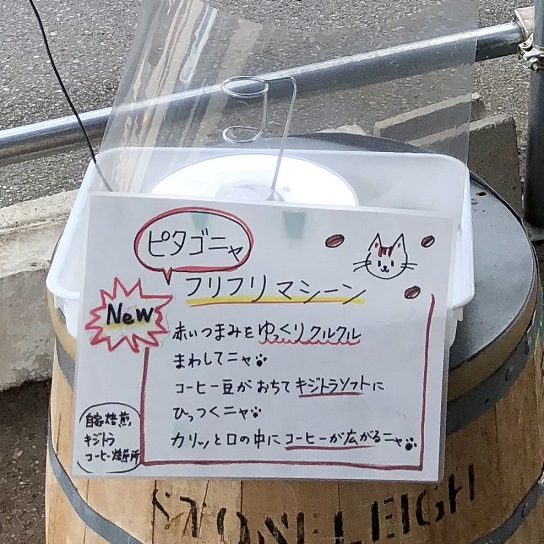 ピタゴニャ
フリフリマシーン
New
赤いつまみをゆっくりクルクル
まわしてニャ
コーヒー豆がおちてキジトラソフトに
ひっつくニャ
カリッと口の中にコーヒーが広がるニャ
自家焙煎
キジトラ
コーヒー焙煎所
STONELEIGH